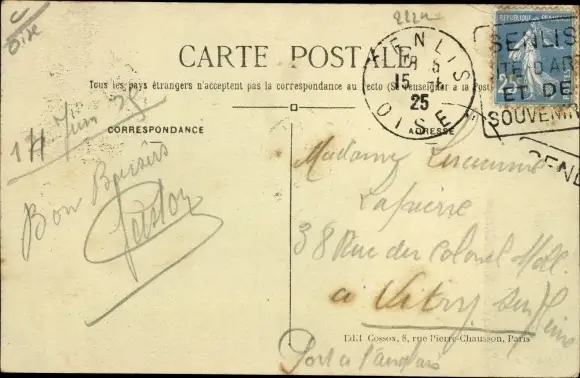 Oise
CARTE POSTALE
Tous les pays étrangers n'acceptent pas la correspondance au recto (Se renseigner à la Poste)
CORRESPONDANCE
ADRESSE
SENLIS
15
25
OISE
SENLIS
ET DE
SOUVENIR
SENL
25
Bon Baisers
Gaston
Madame
Lapierre
38 Rue du Colonel
a Vitry sur Seine
Port a l'anglais
Edit Cosson, 8, rue Pierre-Chausson, Paris